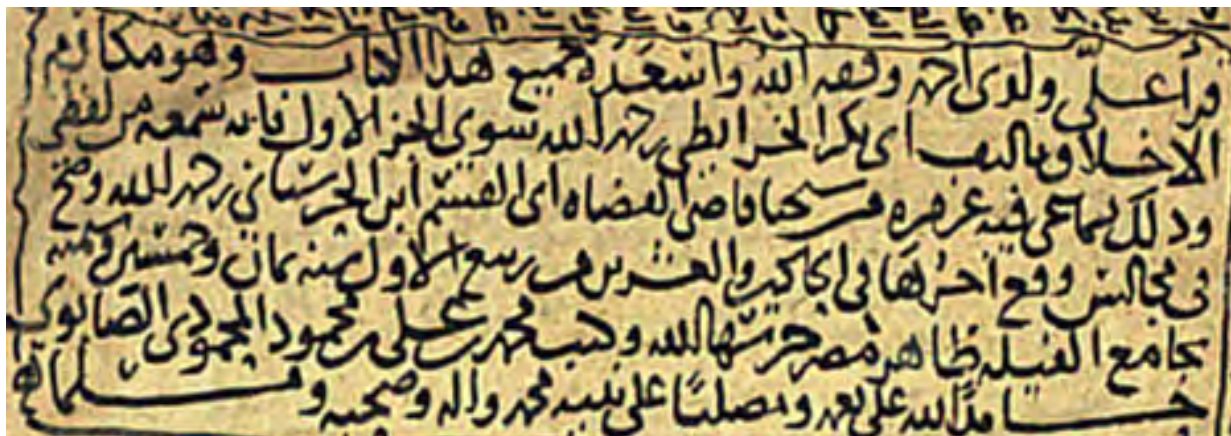 قرأ علي ولدي احمد وفقه الله واسعده جميع هذا الكتاب وهو مكارم
الاخلاق تاليف ابي بكر الخرايطي رحمه الله سوى الجزء الاول فانه سمعه من لفظي
وذلك بسماعي فيه عن شيخنا قاضي القضاه ابي القسم ابن الحرستاني رحمه الله وصح
في مجالس وقع اخرها في الحادي والعشرين من ربيع الاول سنه ثمان وخمسين وستمية
بجامع الفيله ظاهر مصر حرسها الله وكتب محمد بن علي بن محمود المحمودي الصابوني
حامدا لله على نعمه ومصليا على نبيه محمد واله وصحبه ومسلما